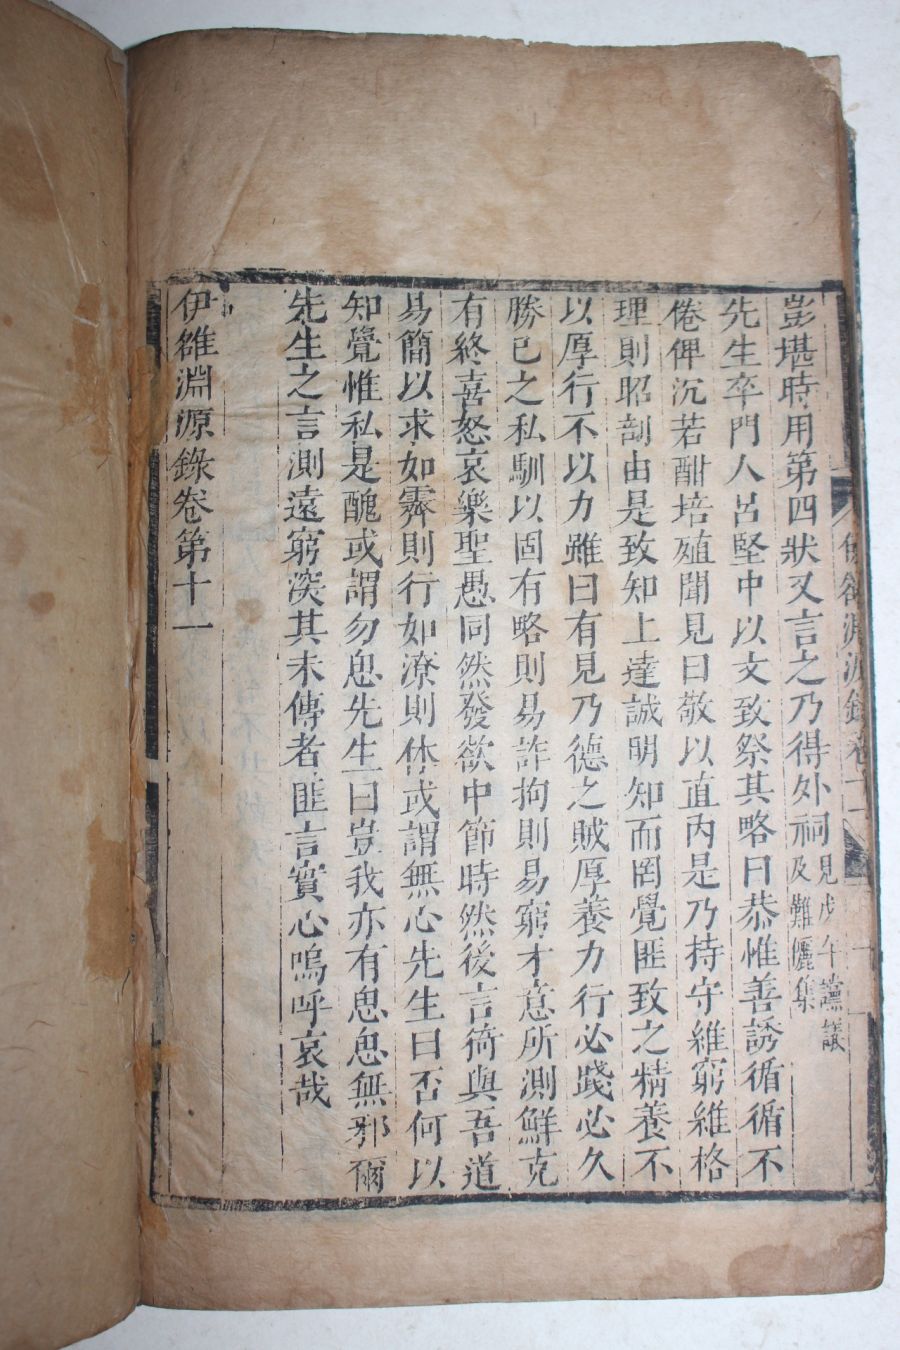 伊雒淵源錄卷十一
彭堪時用第四狀又言之乃得外祠見戊午讜議及難儷集
先生卒門人呂堅中以文致祭其略曰恭惟善誘循循不
倦俾沉若酣培殖聞見曰敬以直內是乃持守維窮維格
理則昭剖由是致知上達誠明知而罔覺匪致之精養不
以厚行不以力雖曰有見乃德之賊厚養力行必踐必久
勝已之私馴以固有略則易詐拘則易窮才意所測鮮克
有終喜怒哀樂聖愚同然發欲中節時然後言猗與吾道
易簡以求如霽則行如潦則休或謂無心先生曰否何以
知覺惟私是醜或謂勿思先生曰豈我亦有思思無邪爾
先生之言測遠窮深其未傳者匪言實心嗚呼哀哉
伊雒淵源錄卷第十一